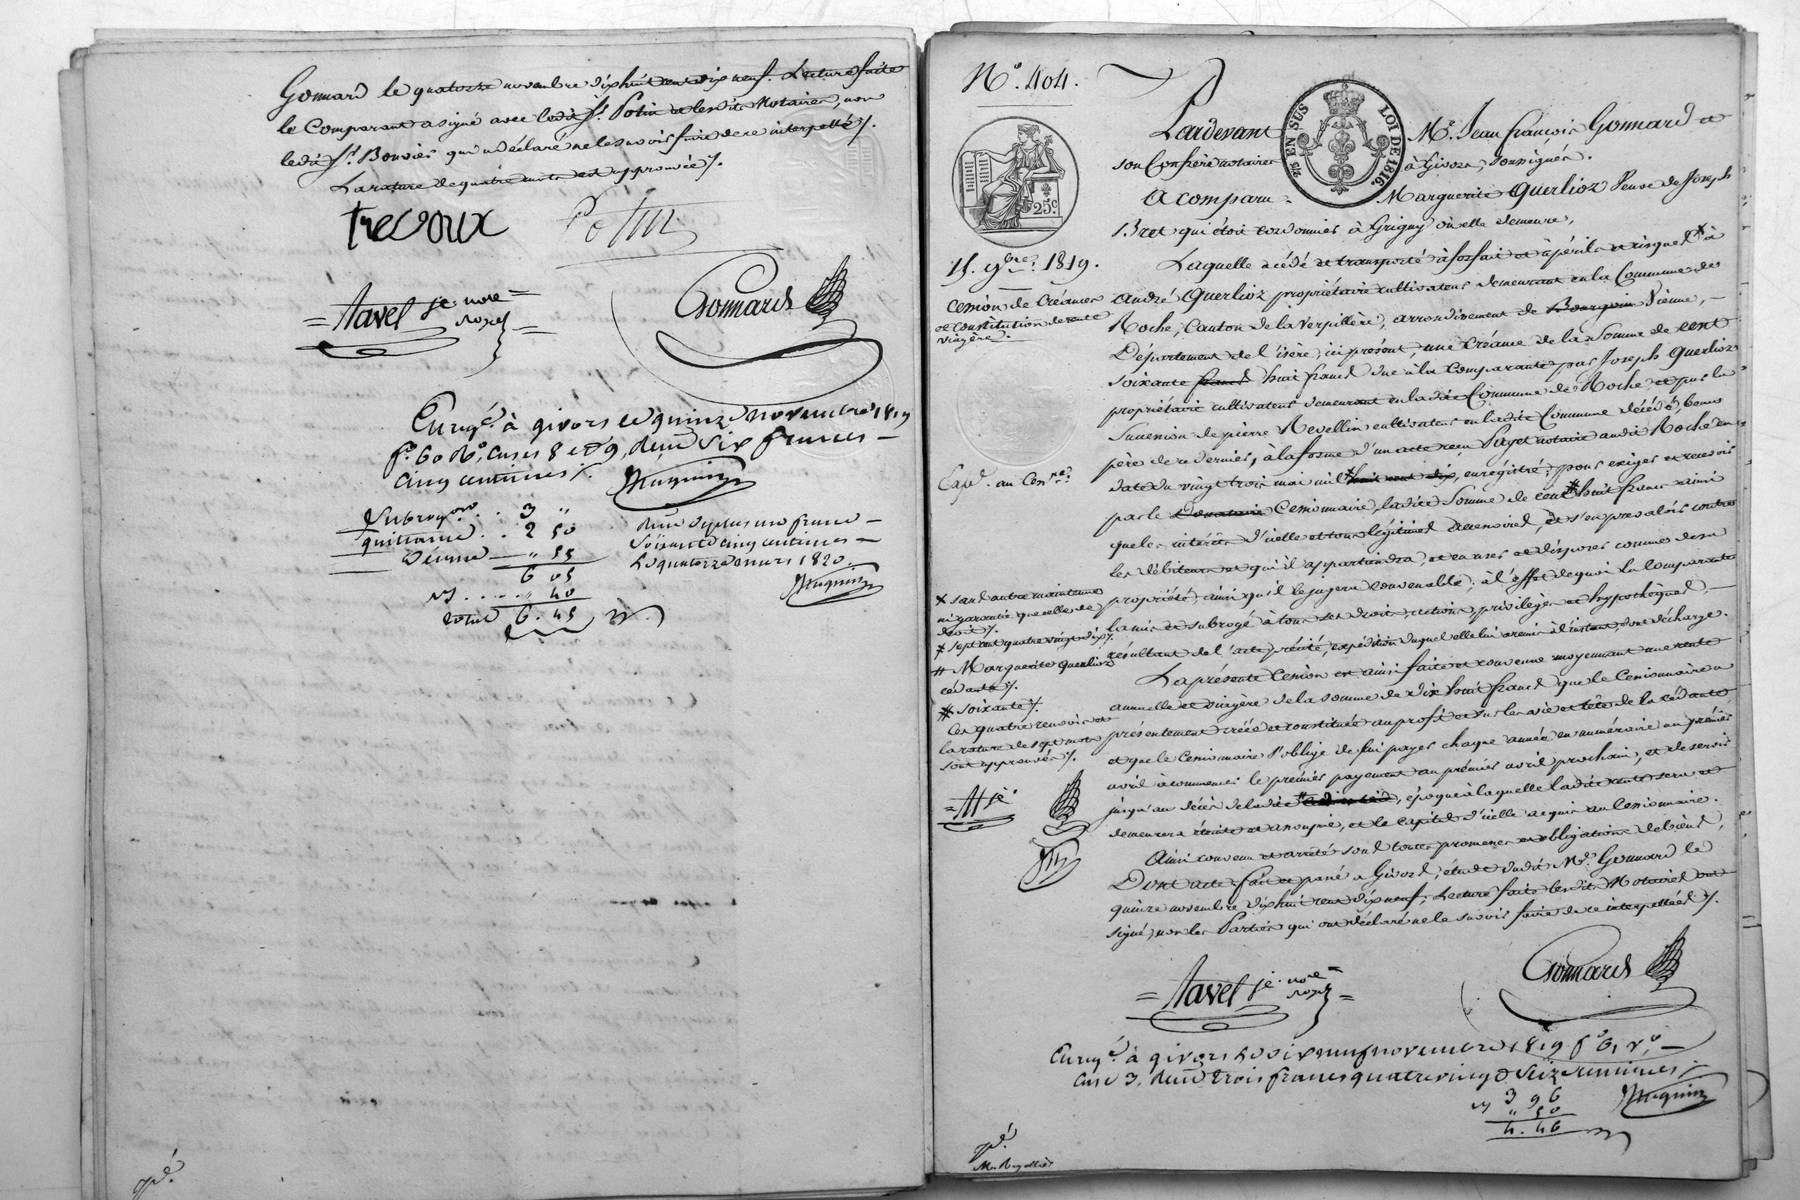 Gonnard le quatorze novembre dix huit cent dix neuf. Lecture faite
le Comparant a signé avec ledit Sr. Potin et lesdits Notaires, non
ledit Sr. Bouvier qui a déclaré ne le savoir faire de ce interpellé ./.
La rature de quatre mots est approuvée ./.
Trevoux Potin
= Tavel je. nore = Gonnard
Enregé. à givors le quinze novembre 1819
fo. 60 Ro. cases 8 et 9, reçu Six francs
cinq centimes ./.
Subrogon. . . 3 "
quittance . . 2 50
Décime " 55
6 05
" 40
total 6. 45
soixante cinq centimes
Le quatorze mars 1820
No. 404.
Pardevant Me. Jean françois Gonnard et
son Confrère notaires à Givors, soussignés.
A comparu Marguerite Querlioz Veuve de Joseph
Bret qui étoit cordonnier à Grigny où elle demeure,
EN SUS LOI DE 1816.
25 c
15. 9bre. 1819.
Cession de Créances
et constitution de rente
viagère.
Laquelle a cédé et transporté à forfait et à périls et risques à
André Querlioz propriétaire cultivateur demeurant en la Commune de
Roche, Canton de la Verpillère, arrondissement de Bourgoin Vienne, —
Département de l'isère, ici présent, une Créance de la Somme de cent
soixante francs huit francs due à la Comparante par Joseph Querlioz
propriétaire cultivateur demeurant en ladite Commune de Roche et par la
Succession de pierre Revellin cultivateur en ladite Commune décédé, beau
père de ce dernier, à la forme d'un acte reçu Payet notaire audit Roche en
date du vingt trois mai mil huit cent dix, enregistré; pour exiger et recevoir
par le Donataire Cessionnaire, ladite Somme de cent huit francs ainsi
que les intérêts d'icelle et tous légitimes accessoires, et s'en prévaloir contre
les débiteurs et qui il appartiendra, et en user et disposer comme de sa
propriété, ainsi qu'il le jugera convenable; à l'effet de quoi la Comparante
l'a mis et subrogé à tous ses droits, actions, privilèges et hypothèques, —
résultant de l'acte précité, expédition duquel elle lui a remis à l'instant, dont décharge.
La présente Cession est ainsi faite et convenue moyennant une rente
annuelle et viagère de la somme de dix huit francs que le Cessionnaire a
présentement créée et constituée au profit et sur les vie et tête de la cédante
et que le Cessionnaire s'oblige de lui payer chaque année en numéraire au premier
avril à commencer le premier payement au premier avril prochain, et de servir
jusqu'au décès de ladite , époque à laquelle ladite rente sera et
demeurera éteinte et assoupie, et le capital d'icelle acquis au Cessionnaire.
Ainsi convenu et arrêté sous toutes promesses et obligations de biens,
Dont acte fait et passé à Givors, étude dudit Me. Gonnard le
quinze novembre dix huit cent dix neuf, Lecture faite lesdits Notaires ont
signé, non les Parties qui ont déclaré ne le savoir faire de ce interpellées ./.
x sans autre maintenue
ni garantie que celle de
droit ./.
x sept cent quatre vingt dix ./.
# Marguerite Querlioz
cédante ./.
# soixante ./.
Ces quatre renvois et
la rature de sept mots
sont approuvés ./.
= Tavel je. nore = Gonnard
Enregé. à givors le dix neuf novembre 1819 fo. 61 Vo.
Case 3, reçu trois francs quatre vingt Seize centimes ./.
3 96
" 50
4. 46